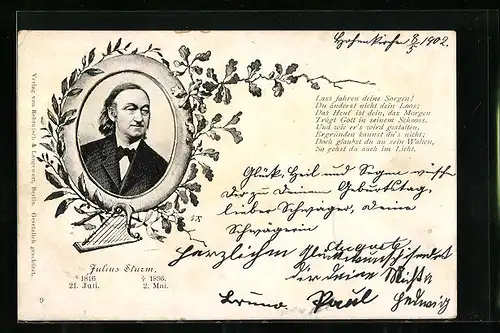 Hohenkirche 8/5 1902.
Lass fahren deine Sorgen!
Du änderst nicht dein Loos;
Das Heut' ist dein, das Morgen
Trägt Gott in seinem Schooss.
Und wie er's wird gestalten,
Ergründen kannst du's nicht;
Doch glaubst du an sein Walten,
So gehst du auch im Licht.
Verlag von Rebensen & Langewort, Berlin. Gesetzlich geschützt.
Glück, Heil und Segen
Dir zu Deinem Geburtstag,
lieber Schwager, Deine
Schwägerin
Auguste
Herzlichen Glückwunsch sendet
Dir Deine
Bruno Paul Hedwig
Julius Sturm,
* 1816 † 1896.
21. Juli. 2. Mai.
9